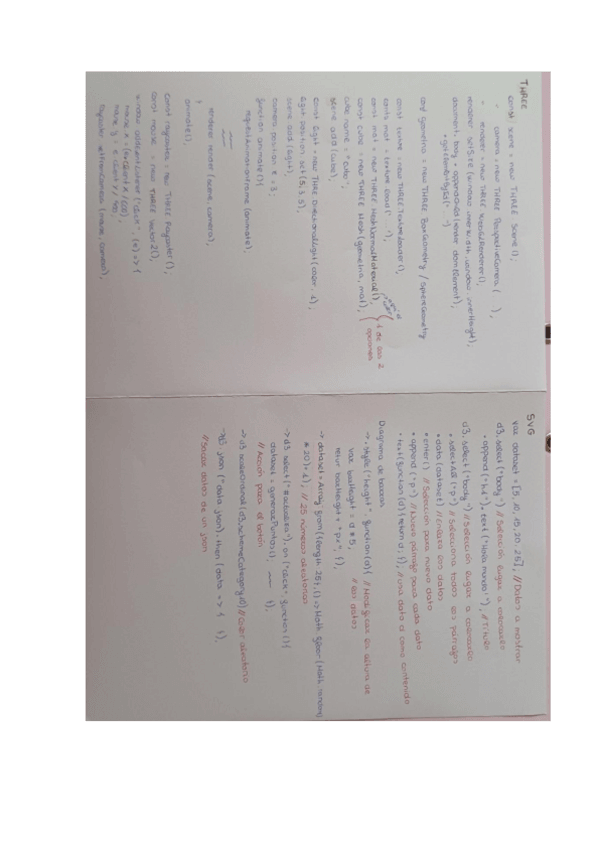 THREE
const scene = new THREE Scene();
- camera = new THREE PerspectiveCamera ( );
- renderer = new THREE WebGLRenderer();
renderer setSize (window innerWidth, window innerHeight);
document. body • appendChild(render domElement);
• getElementById("...")
const geometria = new THREE BoxGeometry / SphereGeometry
const texture = new THREE TextureLoader();
textura load("...");
const mat = new THREE MeshNormalMaterial();
1 de las 2 opciones
const cube = new THREE Mesh (geometria, mat);
cube name = "cubo";
scene add (cube);
const light = new THREE DirectionalLight (color, 1);
light position set (5, 3, 5);
scene add (light);
camera position z = 3;
function animate() {
requestAnimationFrame (animate);
renderer render (scene, camera);
}
animate();
const raycaster = new THREE Raycaster();
const mouse = new THREE Vector2();
window addEventListener ("click", (e) => {
mouse x = (e client x / 600);
mouse y = e client y / 400;
raycaster setFromCamera (mouse, camera);
SVG
var dataset = [5, 10, 15, 20, 25]; // Datos a mostrar
d3. select ("body") // Selección lugar a colocarlo
• append ("h1"). text ("Hola mundo!"); // Título
d3. select ("body") // Selección lugar a colocarlo
• selectAll ("p") // Selecciona todos los párrafos
• data (dataset) // Enlaza los datos
• enter() // Selección para nuevo dato
• append ("p") // Nuevo párrafo para cada dato
• text (function (d) { return d; }); // Una data d como contenido
Diagrama de barras
-> . style ("height", function (d) { // Modificar la altura de
var barHeight = d * 5; // los datos
return barHeight + "px"; });
-> dataset = Array from ({length 25}, () => Math floor (Math. random()
* 20) + 1); // 25 números aleatorios
-> d3 select ("#actualiza"). on ("click", function () {
dataset = generarPuntos(); });
// Acción para el botón
-> d3 scaleOrdinal (d3.schemeCategory10) // Color aleatorio
-> d3 json ("data json). then (data => { });
// Sacar datos de un json